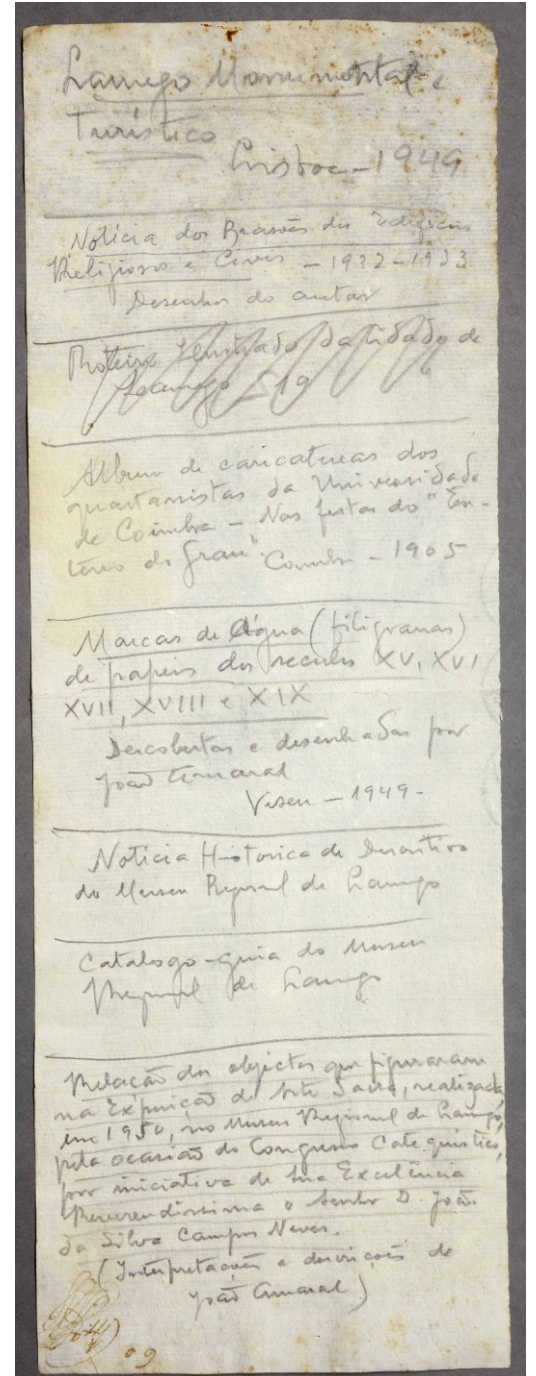 Lamego Monumental e
Turístico
Lisboa - 1949
Notícia dos Brasões dos Edifícios
Religiosos e Civis - 1932-1933
Desenhos do autor
Roteiro Ilustrado da Cidade de
Lamego - 19
Album de caricaturas dos
quartanistas da Universidade
de Coimbra - Nas festas do "En-
terro do Grau". Coimbra - 1905
Marcas de Água (filigranas)
de papeis dos seculos XV, XVI
XVII, XVIII e XIX
Descobertas e desenhadas por
João Amaral
Viseu - 1949-
Notícia Historica de Descritiva
do Museu Regional de Lamego
Catalogo-guia do Museu
Regional de Lamego
Relação dos objectos que figuraram
na Exposição de Arte Sacra, realizada,
em 1950, no Museu Regional de Lamego,
pela ocasião do Congresso Catequístico,
por iniciativa de Sua Excelência
Reverendissima o Senhor D. João
da Silva Campos Neves.
(Interpretações e descrições de
João Amaral)
09